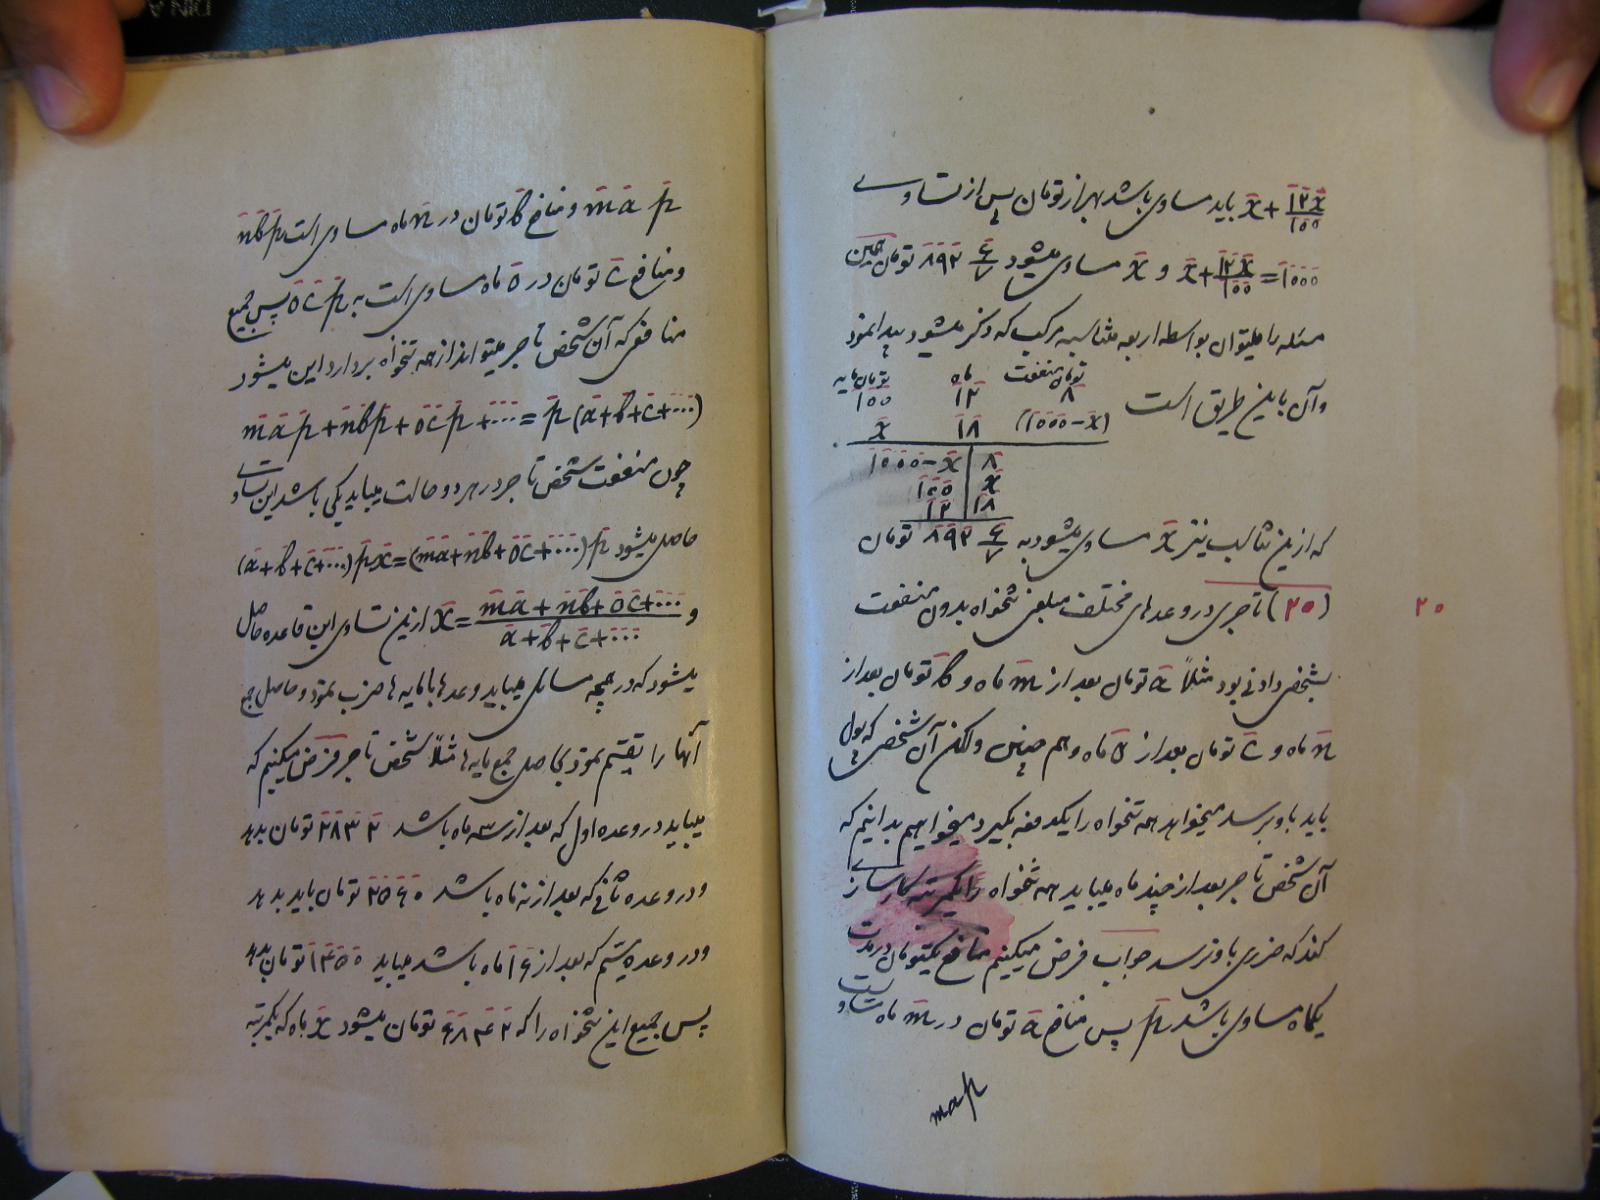 x + ١٢x/١٠٠ باید مساوی باشد بهزار تومان پس از تساوی
x + ١٢x/١٠٠ = ١٠٠٠ و x مساوی میشود ٨٩٢ ٦/٧ تومان همین
مسئله را میتوان بواسطه اربعه متناسبه مرکب که ذکر میشود پیدا نمود
تومان منفعت ماه تومان مایه
٨ ١٢ ١٠٠
وآن باین طریق است
(١٠٠٠-x) ١٨ x
١٠٠٠-x | ٨
١٠٠ | x
١٢ | ١٨
که ازین تناسب نیز x مساوی میشود به ٨٩٢ ٦/٧ تومان
(٢٠) تاجری در وعدهای مختلف مبلغی تنخواه بدون منفعت
٢٠
بشخصی دادنی بود مثلاً a تومان بعد از m ماه و b تومان بعد از
n ماه و c تومان بعد از o ماه وهم چنین ولکن آن شخصی که پول
باید باو برسد میخواهد همه تنخواه را یکدفعه بگیرد میخواهیم بدانیم که
آن شخص تاجر بعد از چند ماه میباید همه تنخواه را یکمرتبه کارسازی
کند که ضرری باو نرسد جواب فرض میکنیم منافع یکتومان در مدت
یکماه مساوی باشد p پس منافع a تومان در m ماه مساویست
map
map و منافع b تومان در n ماه مساوی است nbp
و منافع c تومان در o ماه مساوی است به ocp پس جمیع
منافعی که آن شخص تاجر میتواند از همه تنخواه بردارد این میشود
map + nbp + ocp + ... = p(a+b+c+...)
چون منفعت شخص تاجر در هر دو حالت میباید یکی باشد این تساوی
حاصل میشود (a+b+c+...)px = (ma+nb+oc+...)p
و x = ma+nb+oc+.../a+b+c+... ازین تساوی این قاعده حاصل
میشود که در همچه مسائل میباید وعدها با مایه ها ضرب نمود و حاصل جمع
آنها را تقسیم نمود بحاصل جمع مایه ها مثلاً شخص تاجر فرض میکنیم که
میباید در وعده اول که بعد از سه ماه باشد ٢٨٣٢ تومان بدهد
و در وعده ثانی که بعد از نه ماه باشد ٢٥٦٠ تومان باید بدهد
و در وعده سیّم که بعد از ١٦ ماه باشد میباید ١٤٥٠ تومان بدهد
پس جمیع این تنخواه را که ٦٨٤٢ تومان میشود x ماه که یکمرتبه